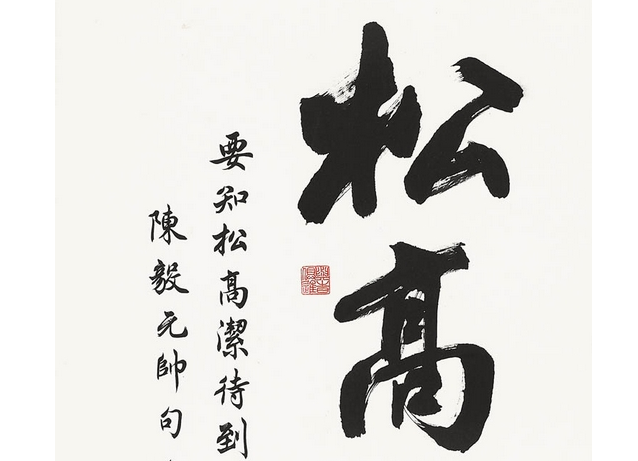 松高
要知松高潔待到
陳毅元帥句